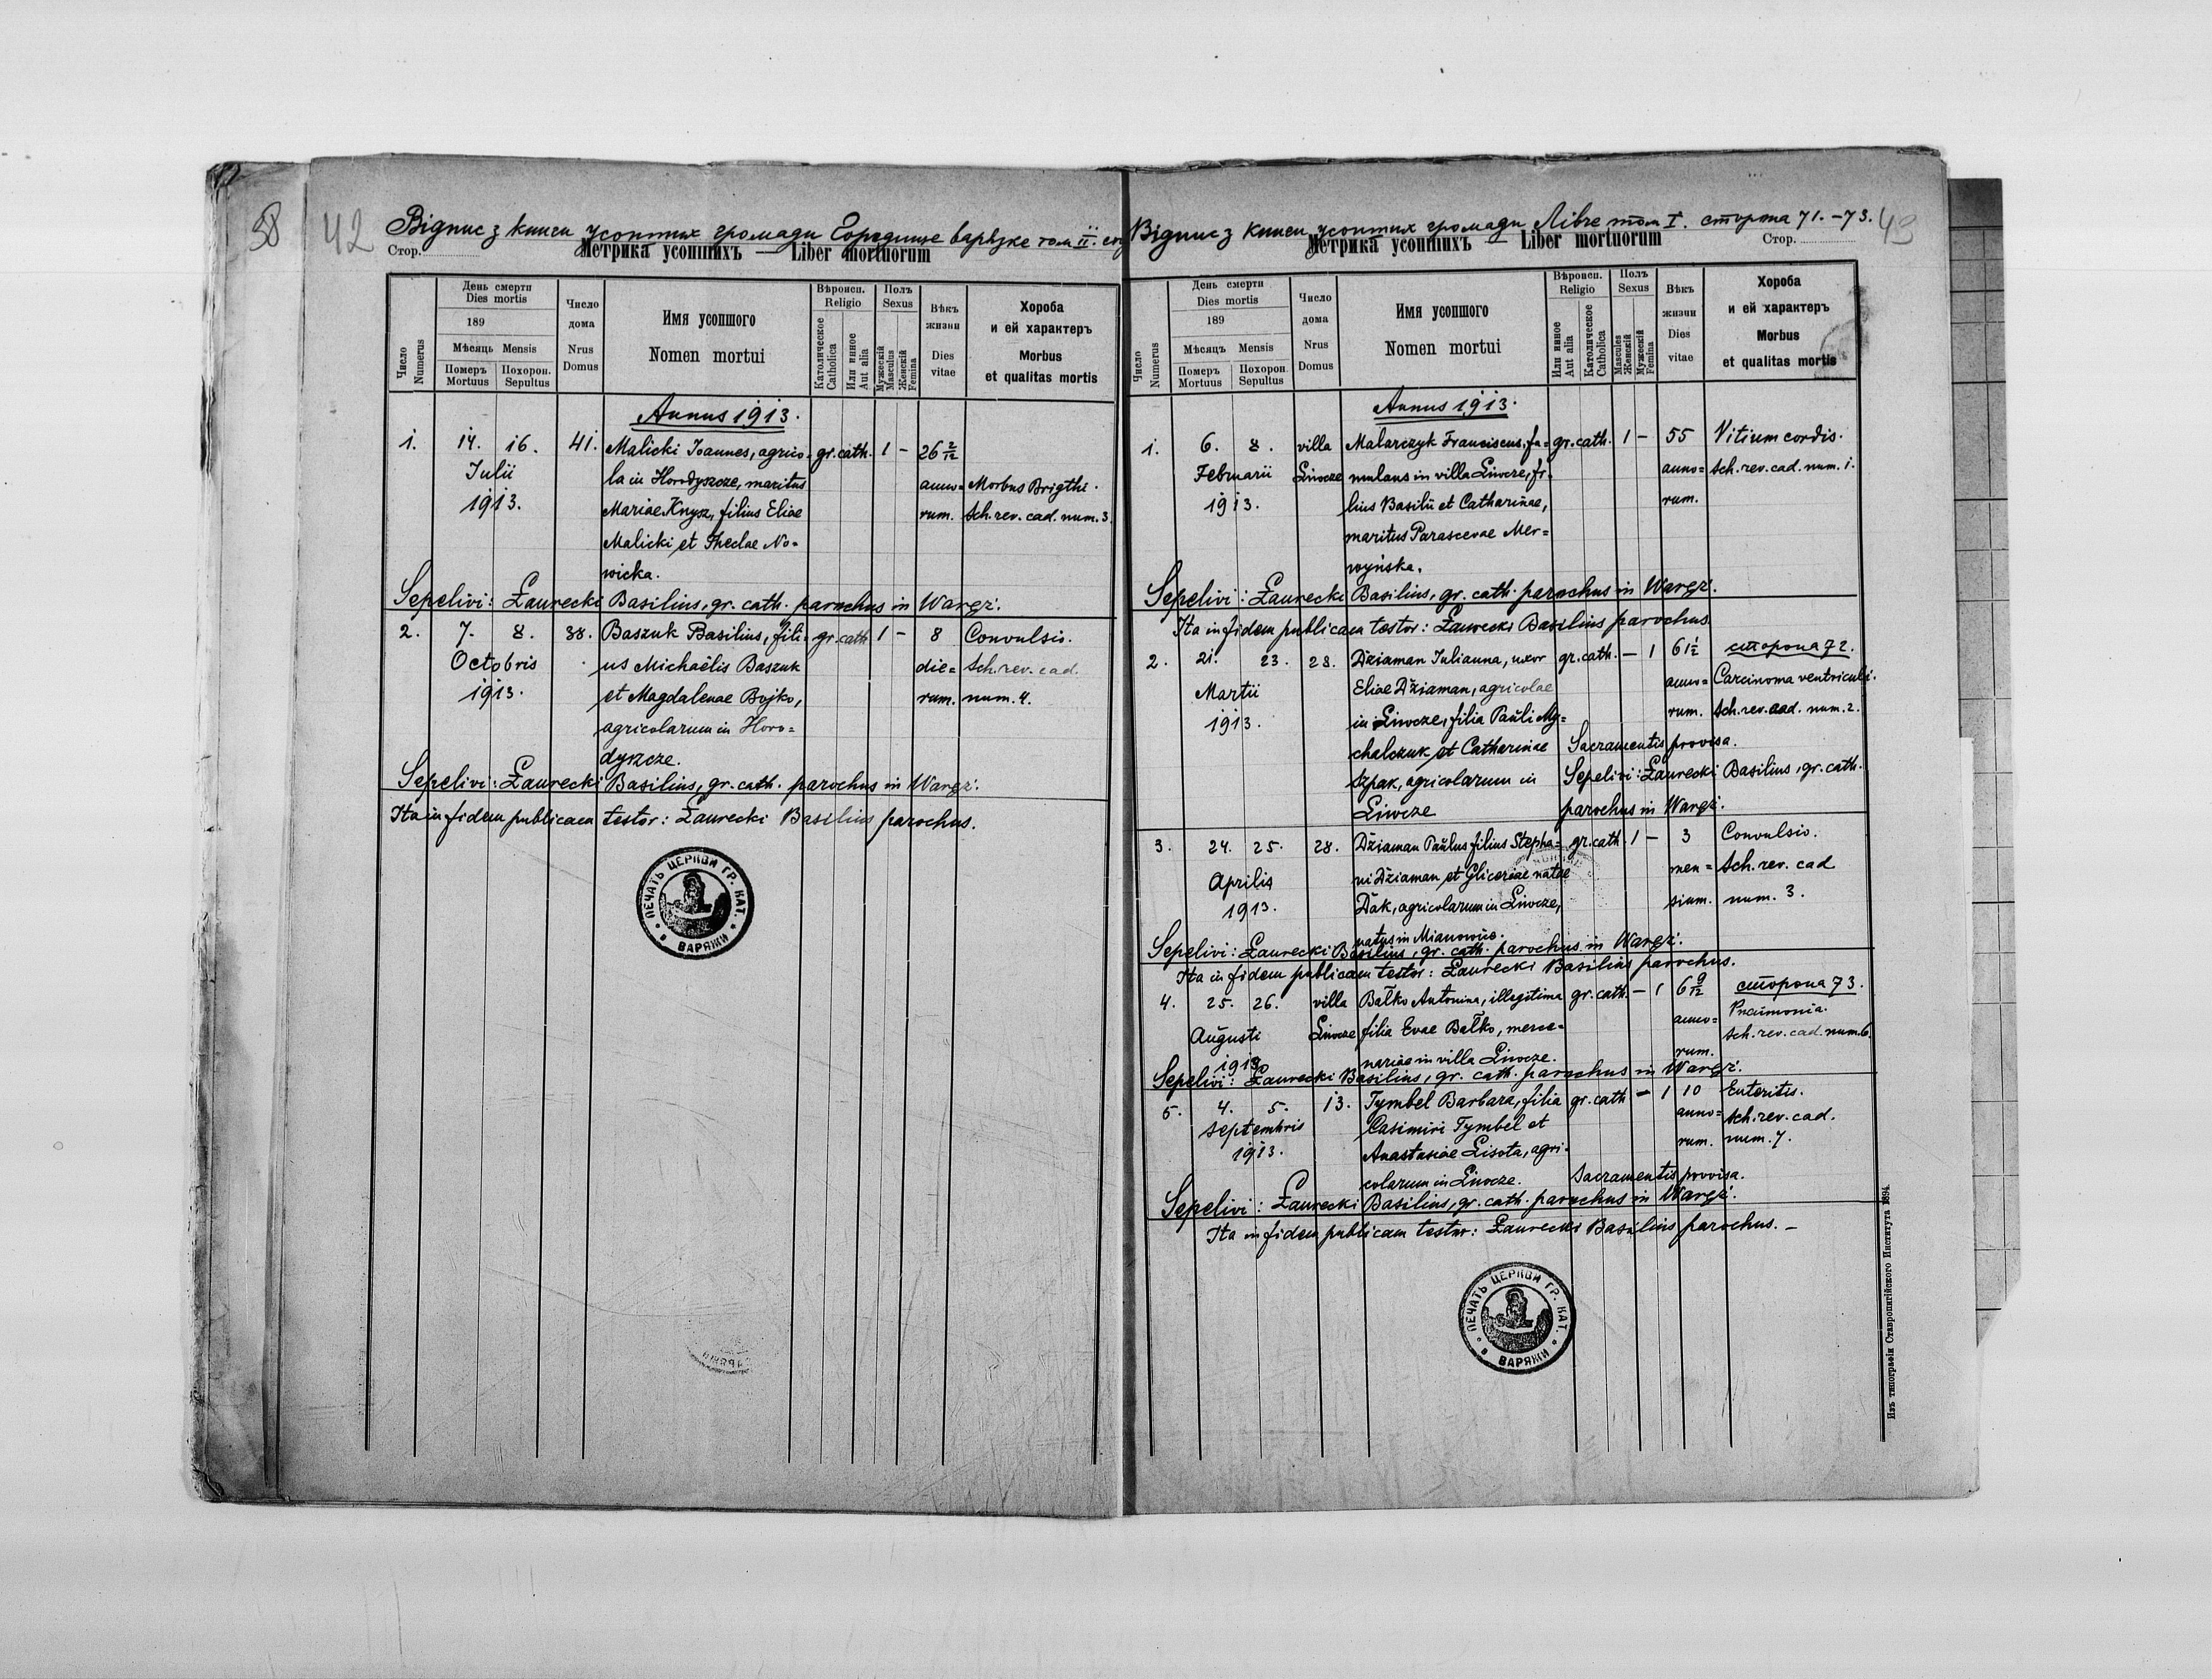 58 42
Відпис з книги усопших громади Городище варяжске том II.
Стор.
Метрика усопшихъ — Liber mortuorum
Число
Numerus
День смерти
Dies mortis
189
Мѣсяць Mensis
Померъ
Mortuus
Похорон.
Sepultus
Число
дома
Nrus
Domus
Имя усопшого
Nomen mortui
Вѣроисп.
Religio
Католическое
Catholica
Или инное
Aut alia
Полъ
Sexus
Мужескій
Masculus
Женскій
Femina
Вѣкъ
жизни
Dies
vitae
Хороба
и ей характеръ
Morbus
et qualitas mortis
Annus 1913.
1. 14. 16. 41. Malicki Ioannes, agrico- gr. cath. 1 – 26 2/12
Iulii la in Horodyszcze, maritus anno= Morbus Brigthi.
1913. Mariae Knysz, filius Eliae rum. Sch. rev. cad. num. 3.
Malicki et Theclae No=
wicka.
Sepelivi: Żaurecki Basilius, gr. cath. parochus in Waręż.
2. 7. 8. 38. Baszuk Basilius, fili- gr. cath 1 – 8 Convulsio.
Octobris us Michaëlis Baszuk die= Sch. rev. cad.
1913. et Magdalenae Bojko, rum. num. 4.
agricolarum in Horo=
dyszcze.
Sepelivi: Żaurecki Basilius, gr. cath. parochus in Waręż.
Ita in fidem publicam testor: Żaurecki Basilius parochus.
ПЕЧАТЬ ЦЕРКОИ ГР. КАТ.
в ВАРЯЖИ
Відпис з книги усопших громади Лівче том I. сторона 71.–73. 43
Метрика усопшихъ — Liber mortuorum
Стор.
Число
Numerus
День смерти
Dies mortis
189
Мѣсяцъ Mensis
Померъ
Mortuus
Похорон.
Sepultus
Число
дома
Nrus
Domus
Имя усопшого
Nomen mortui
Вѣроисп.
Religio
Или инное
Aut alia
Католическое
Catholica
Полъ
Sexus
Masculus
Женскій
Мужескій
Femina
Вѣкъ
жизни
Dies
vitae
Хороба
и ей характеръ
Morbus
et qualitas mortis
Annus 1913.
1. 6. 8. villa Malarczyk Franciscus, fa= gr. cath. 1 – 55 Vitium cordis.
Februarii Liwcze mulans in villa Liwcze, fi- anno= Sch. rev. cad. num. 1.
1913. lius Basilii et Catharinae, rum.
maritus Parascevae Mer=
wyńska.
Sepelivi: Żaurecki Basilius, gr. cath. parochus in Waręż.
Ita in fidem publicam testor: Żaurecki Basilius parochus.
2. 21. 23. 28. Dziaman Iulianna, uxor gr. cath. – 1 61½ сторона 72.
Martii Eliae Dżiaman, agricolae anno= Carcinoma ventriculi.
1913. in Liwcze, filia Pauli My= rum. Sch. rev. cad. num. 2.
chalczuk et Catharinae Sacramentis provisa.
Szpak, agricolarum in Sepelivi: Żaurecki Basilius, gr. cath.
Liwcze parochus in Waręż.
3. 24. 25. 28. Dżiaman Paulus filius Stepha= gr. cath. 1 – 3 Convulsio.
Aprilis ni Dżiaman et Gliceriae natae men= Sch. rev. cad
1913. Dak, agricolarum in Liwcze, sium. num. 3.
natus in Mianowice.
Sepelivi: Żaurecki Basilius, gr. cath. parochus in Waręż.
Ita in fidem publicam testor: Żaurecki Basilius parochus.
4. 25. 26. villa Bałko Antonina, illegitima gr. cath. – 1 6 9/12 сторона 73.
Augusti Liwcze filia Evae Bałko, merce= anno= Pneumonia.
1913. nariae in villa Liwcze. rum. Sch. rev. cad. num. 6.
Sepelivi: Żaurecki Basilius, gr. cath. parochus in Waręż.
5. 4. 5. 13. Tymbel Barbara, filia gr. cath – 1 10 Enteritis.
Septembris Casimiri Tymbel et anno= Sch. rev. cad.
1913. Anastasiae Lisota, agri- rum. num. 7.
colarum in Liwcze. Sacramentis provisa.
Sepelivi: Żaurecki Basilius, gr. cath. parochus in Waręż.
Ita in fidem publicam testor: Żaurecki Basilius parochus. –
ПЕЧАТЬ ЦЕРКОИ ГР. КАТ.
в ВАРЯЖИ
Изъ типографіи Ставропигійского Института 1894.